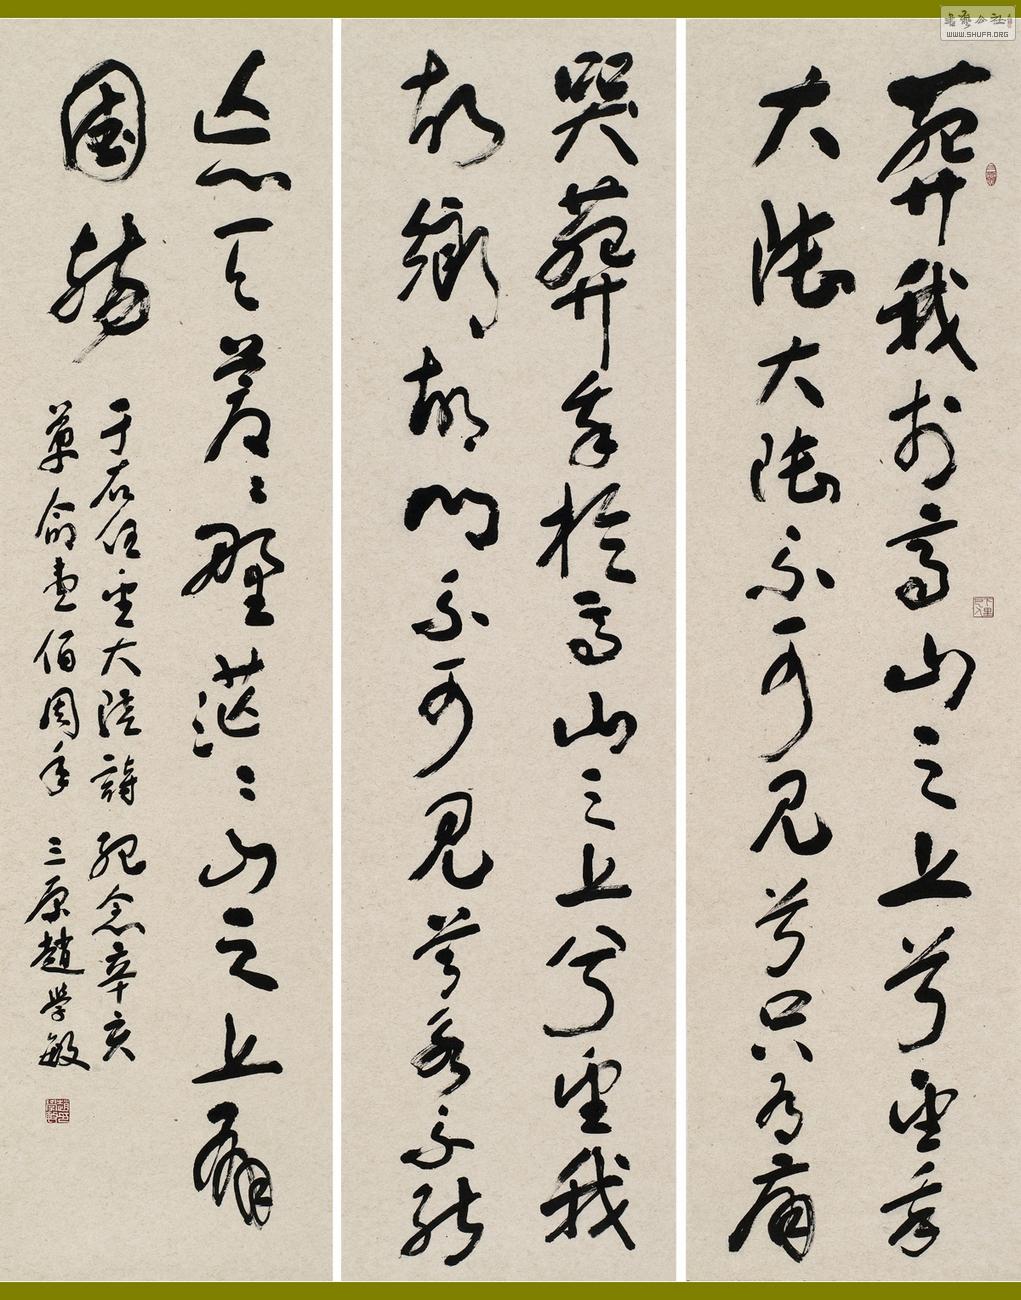 葬我於高山之上兮望我
大陸大陸不可見兮只有痛
哭葬我於高山之上兮望我
故鄉故鄉不可見兮永不能
忘天蒼々野茫々山之上有
國殤
于右任望大陸詩 紀念辛亥
革命壹佰周年 三原趙學敏
書藝公社
WWW.SHUFA.ORG